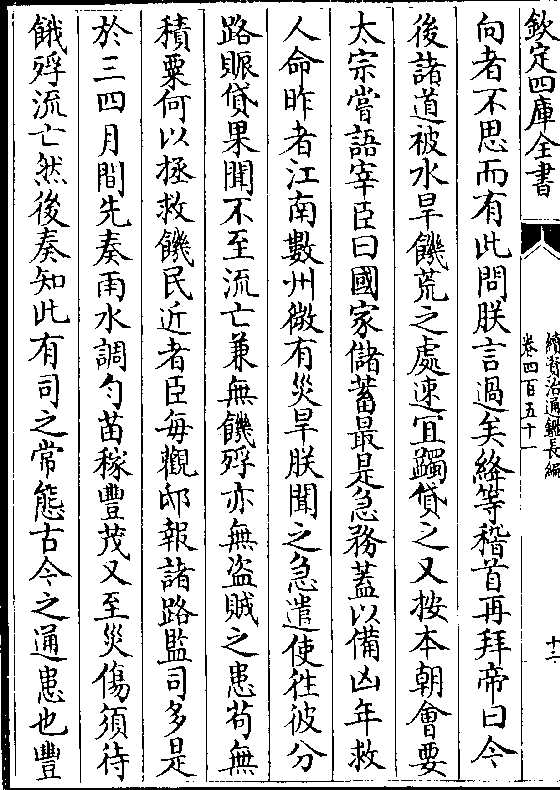 欽定四庫全書
續資治通鑑長編
卷四百五十一
十二
向者不思而有此問朕言過矣絳等稽首再拜帝曰今
後諸道被水旱饑荒之處速宜蠲貸之又按本朝會要
太宗嘗語宰臣曰國家儲蓄最是急務蓋以備凶年救
人命昨者江南數州微有災旱朕聞之急遣使往彼分
路賑貸果聞不至流亡兼無饑殍亦無盜賊之患苟無
積粟何以拯救饑民近者臣每觀邸報諸路監司多是
於三四月間先奏雨水調勻苗稼豐茂又至災傷須待
餓殍流亡然後奏知此有司之常態古今之通患也豐